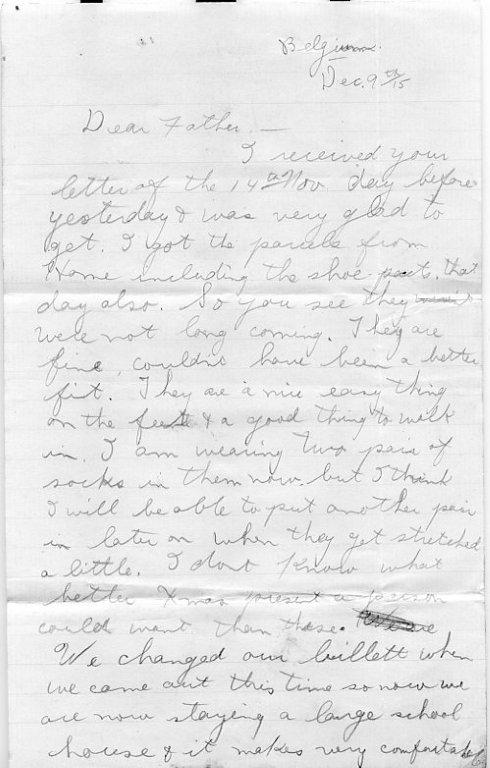 Belgium.
Dec. 9th/15
Dear Father. —
I received your
letter of the 14th Nov day before
yesterday & was very glad to
get. I got the parcels from
Home including the shoe pacts, that
day also. So you see they
were not long coming. They are
fine, couldnt have been a better
fit. They are a nice easy thing
on the feet & a good thing to walk
in. I am wearing two pair of
socks in them now but I think
I will be able to put another pair
in later on when they get stretched
a little. I dont know what
better Xmas present a person
could want than these. We are
We changed our billett when
we came out this time so now we
are now staying a large school
house & it makes very comfortable